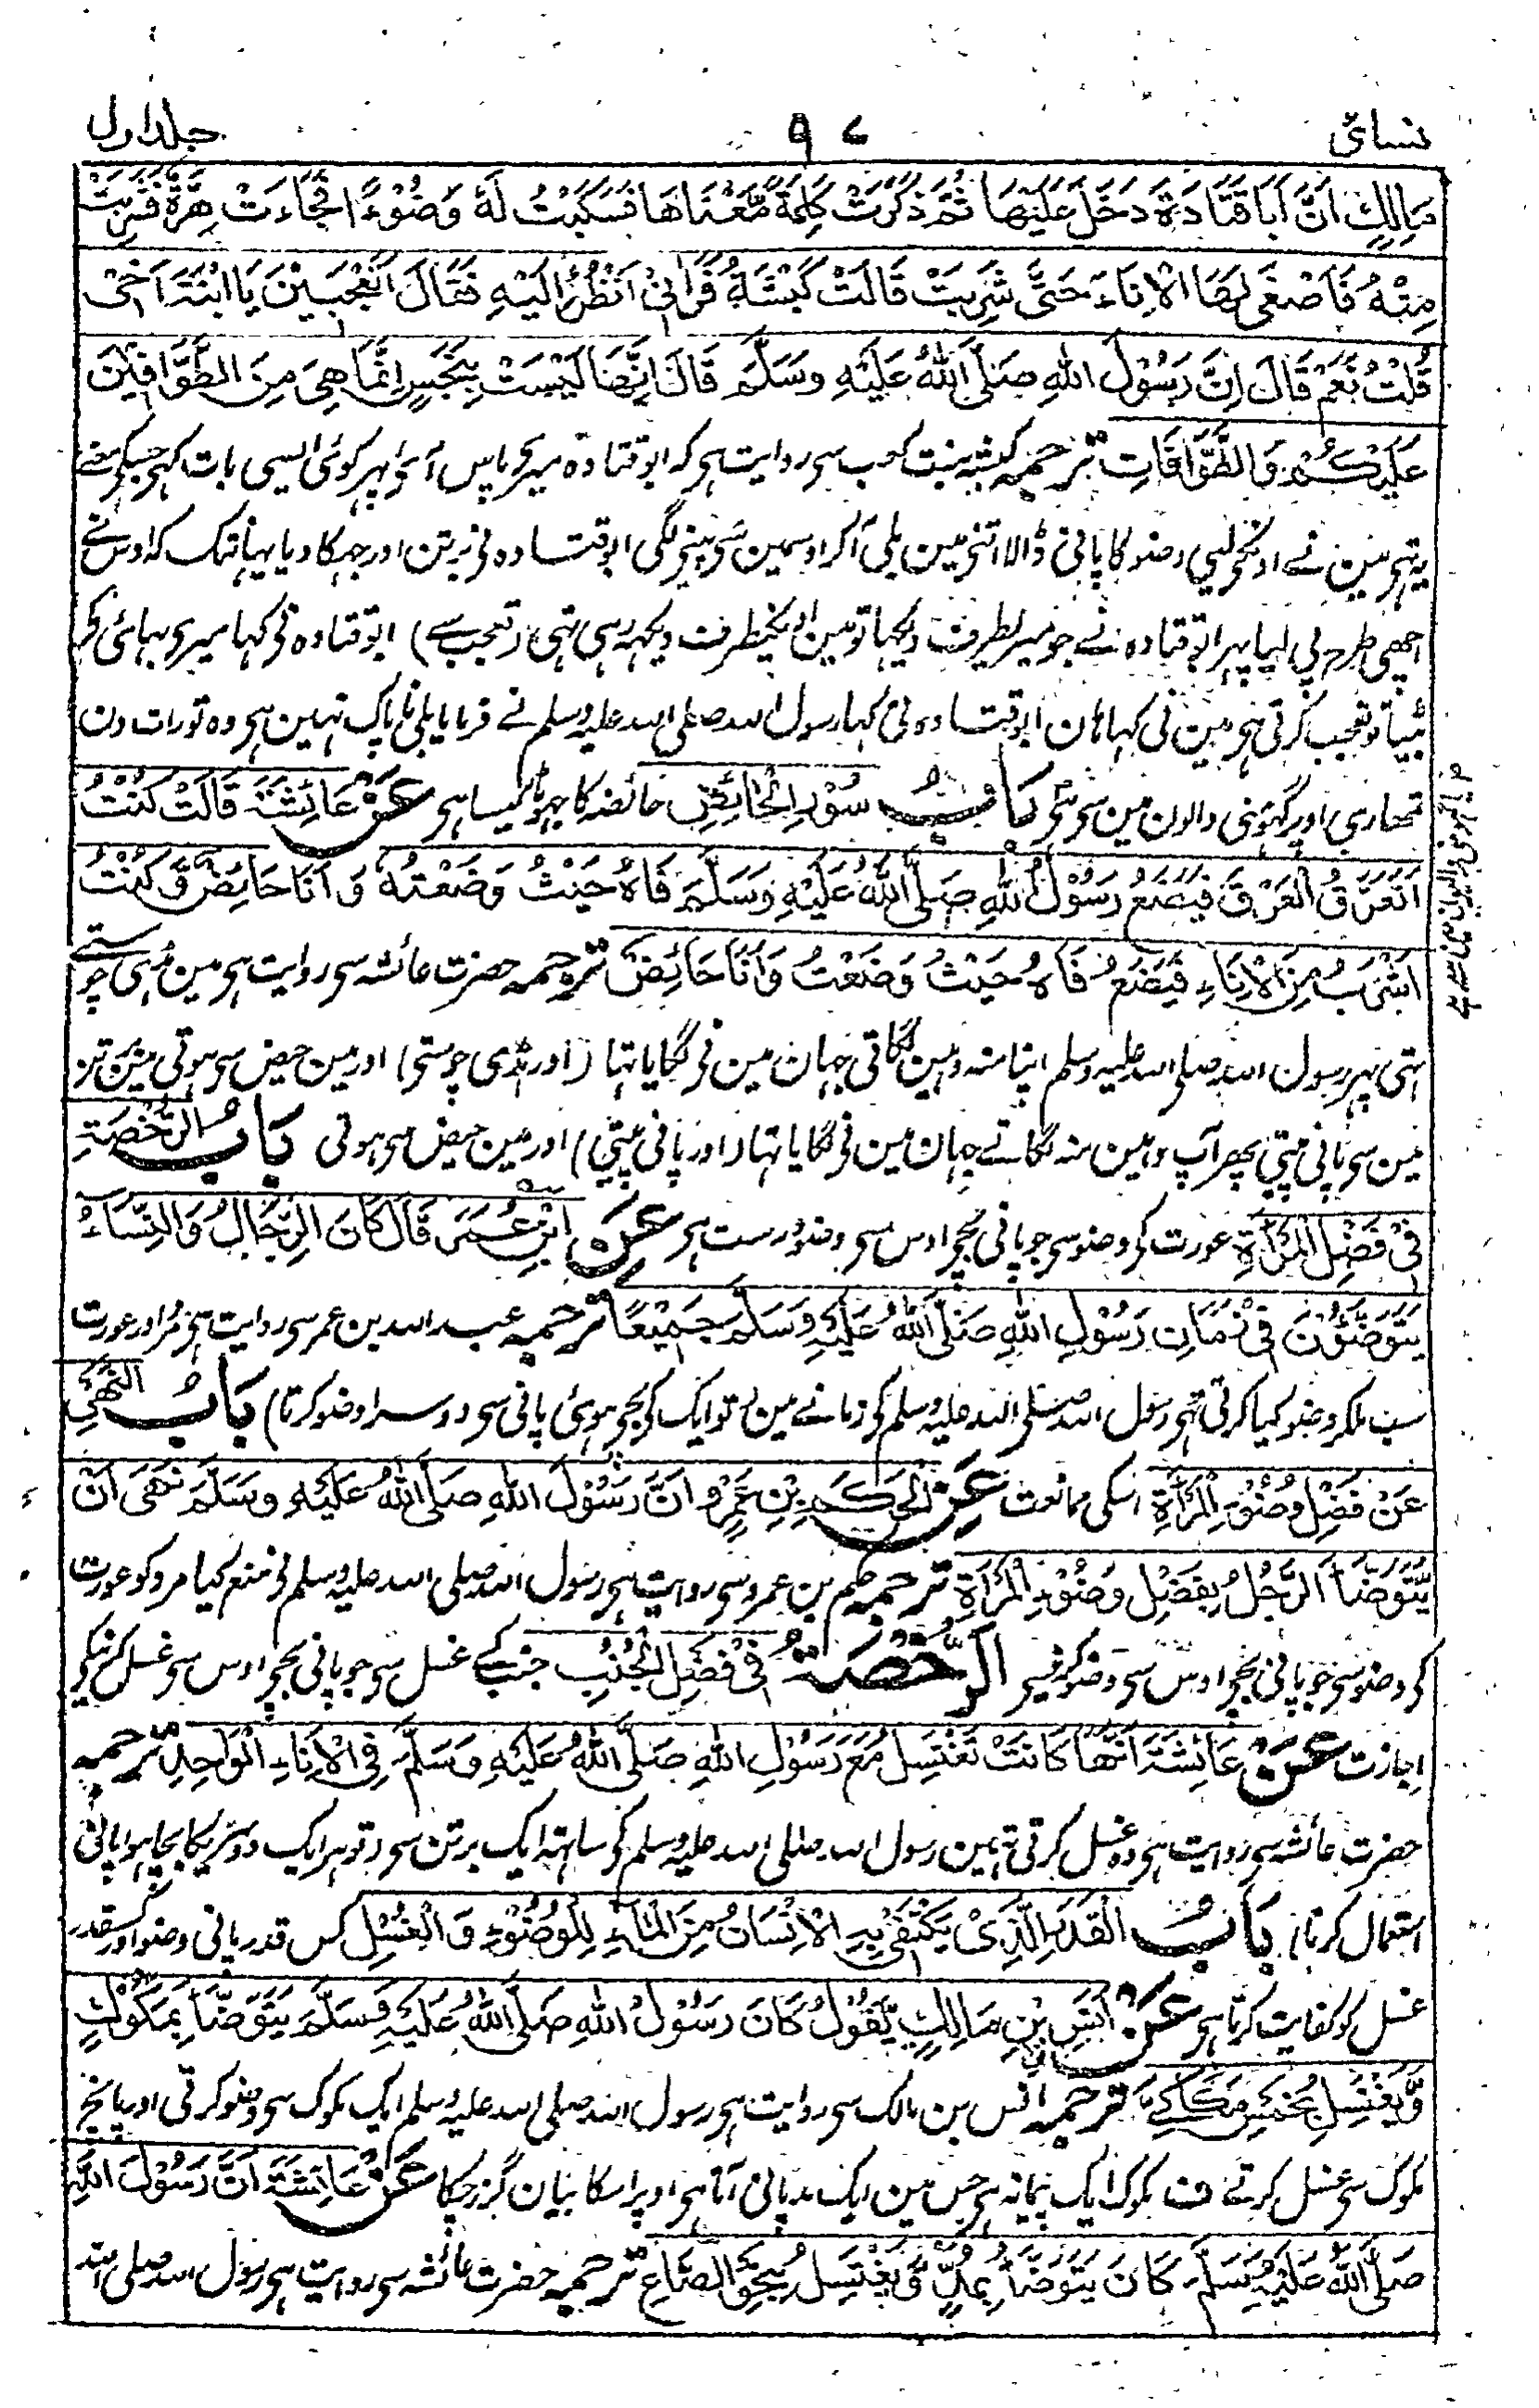 نسائی ۹۷ جلد اول
مَالِكٍ اَنَّ اَبَا قَتَادَةَ دَخَلَ عَلَيْهَا ثُمَّ ذَكَرَتْ كَلِمَةً مَّعْنَاهَا فَسَكَبْتُ لَهٗ وَضُوْءًا فَجَاءَتْ هِرَّةٌ فَشَرِبَتْ
مِنْهُ فَاَصْغٰى لَهَا الْاِنَاءَ حَتّٰى شَرِبَتْ قَالَتْ كَبْشَةُ فَرَاٰنِیْ اَنْظُرُ اِلَيْهِ فَقَالَ اَتَعْجَبِيْنَ يَا ابْنَةَ اَخِیْ
قُلْتُ نَعَمْ قَالَ اِنَّ رَسُوْلَ اللهِ صَلَّى اللهُ عَلَيْهِ وَسَلَّمَ قَالَ اِنَّهَا لَيْسَتْ بِنَجَسٍ اِنَّمَا هِيَ مِنَ الطَّوَّافِيْنَ
عَلَيْكُمْ وَالطَّوَّافَاتِ ترجمہ کبشہ بنت کعب سے روایت ہے کہ ابوقتادہ میرے پاس آئے پہر کوئی ایسی بات کہی جسکے معنے
یہ تہے مین نے اونکے لیے وضو کا پانی ڈالا اتنے مین بلی آکر اوسمین سے پینے لگی ابوقتادہ نے برتن اور جہکا دیا یہانتک کہ اوس نے
اچھی طرح پی لیا پہر ابوقتادہ نے جو میری طرف دیکہا تو مین اونکیطرف دیکہہ رہی تہی (تعجب سے) ابوقتادہ نے کہا میرے بہائی کی
بیٹیا تو تعجب کرتی ہے مین نے کہا ہان ابوقتادہ نے کہا رسول اللہ صلی اللہ علیہ وسلم نے فرمایا بلی ناپاک نہین ہے وہ تو رات دن
تمہارے اوپر گہومنے والون مین سے ہے بَابُ سُوْرِ الْحَائِضِ حائضہ کا جہوٹا کیسا ہے عَنْ عَائِشَةَ قَالَتْ كُنْتُ
اَتَعَرَّقُ الْعَرْقَ فَيَضَعُ رَسُوْلُ اللهِ صَلَّى اللهُ عَلَيْهِ وَسَلَّمَ فَاهُ حَيْثُ وَضَعْتُهٗ وَاَنَا حَائِضٌ وَّكُنْتُ
اَشْرَبُ مِنَ الْاِنَاءِ فَيَضَعُ فَاهُ حَيْثُ وَضَعْتُ وَاَنَا حَائِضٌ ترجمہ حضرت عائشہ سے روایت ہے مین ہڈی چوستے
تہی پہر رسول اللہ صلی اللہ علیہ وسلم اپنا منہ وہین لگاتے جہان مین نے لگایا تہا (اور ہڈی چوستے) اور مین حیض سے ہوتی مین برتن
مین سے پانی پیتی پھر آپ وہین منہ لگاتے جہان مین نے لگایا تہا (اور پانی پیتے) اور مین حیض سے ہوتی بَابُ الرُّخْصَةِ
فِيْ فَضْلِ الْمَرْاَةِ عورت کے وضو سے جو پانی بچے اوس سے وضو درست ہے عَنِ ابْنِ عُمَرَ قَالَ كَانَ الرِّجَالُ وَالنِّسَاءُ
يَتَوَضَّؤُنَ فِيْ زَمَانِ رَسُوْلِ اللهِ صَلَّى اللهُ عَلَيْهِ وَسَلَّمَ جَمِيْعًا ترجمہ عبد اللہ بن عمر سے روایت ہے مرد اور عورت
سب ملکر وضو کیا کرتے تہے رسول اللہ صلی اللہ علیہ وسلم کے زمانے مین (تو ایک کے بچے ہوئے پانی سے دوسرا وضو کرتا) بَابُ النَّهْيِ
عَنْ فَضْلِ وُضُوْءِ الْمَرْاَةِ اسکی ممانعت عَنِ الْحَكَمِ بْنِ عَمْرٍو اَنَّ رَسُوْلَ اللهِ صَلَّى اللهُ عَلَيْهِ وَسَلَّمَ نَهٰى اَنْ
يَّتَوَضَّأَ الرَّجُلُ بِفَضْلِ وَضُوْءِ الْمَرْاَةِ ترجمہ حکم بن عمرو سے روایت ہے رسول اللہ صلی اللہ علیہ وسلم نے منع کیا مرد کو عورت
کے وضو سے جو پانی بچے اوس سے وضو کرنیسے الرُّخْصَةُ فِيْ فَضْلِ الْجُنُبِ جنب کے غسل سے جو پانی بچے اوس سے غسل کرنیکی
اجازت عَنْ عَائِشَةَ اَنَّهَا كَانَتْ تَغْتَسِلُ مَعَ رَسُوْلِ اللهِ صَلَّى اللهُ عَلَيْهِ وَسَلَّمَ فِي الْاِنَاءِ الْوَاحِدِ ترجمہ
حضرت عائشہ سے روایت ہے وہ غسل کرتی تہین رسول اللہ صلی اللہ علیہ وسلم کے ساتہ ایک برتن سے (تو ہر ایک دوسریکا بچا ہوا پانی
استعمال کرتا) بَابُ الْقَدْرِ الَّذِیْ يَكْتَفِیْ بِهِ الْاِنْسَانُ مِنَ الْمَاءِ لِلْوُضُوْءِ وَالْغُسْلِ کس قدر پانی وضو اور کسقدر
غسل کو کفایت کرتا ہے عَنْ اَنَسِ بْنِ مَالِكٍ يَّقُوْلُ كَانَ رَسُوْلُ اللهِ صَلَّى اللهُ عَلَيْهِ وَسَلَّمَ يَتَوَضَّأُ بِمَكُّوْكٍ
وَّيَغْتَسِلُ بِخَمْسِ مَكَاكِيَّ ترجمہ انس بن مالک سے روایت ہے رسول اللہ صلی اللہ علیہ وسلم ایک مکوک سے وضو کرتے اور پانچ
مکوک سے غسل کرتے ف مکوک ایک پیمانہ ہے جس مین ایک مد پانی آتا ہے اوپر اسکا بیان گزر چکا عَنْ عَائِشَةَ اَنَّ رَسُوْلَ اللهِ
صَلَّى اللهُ عَلَيْهِ وَسَلَّمَ كَانَ يَتَوَضَّأُ بِمُدٍّ وَّيَغْتَسِلُ بِنَحْوِ الصَّاعِ ترجمہ حضرت عائشہ سے روایت ہے رسول اللہ صلی اللہ